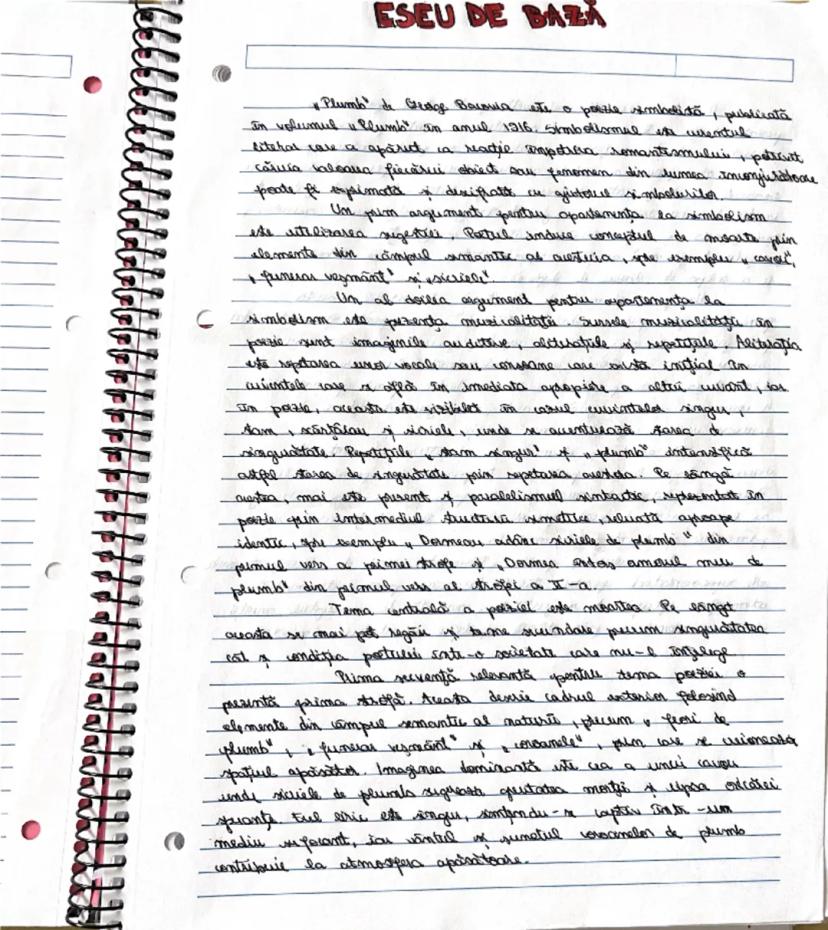 ESEU DE BAZĂ
„Plumb" de George Bacovia este o poezie simbolistă, publicată
în volumul „Plumb" în anul 1916. Simbolismul este curentul
literar care a apărut ca reacție împotriva romantismului, potrivit
căruia valoarea fiecărui obiect sau fenomen din lumea înconjurătoare
poate fi exprimată și descifrată cu ajutorul simbolurilor.
Un prim argument pentru apartenența la simbolism
este utilizarea sugestiei. Poetul induce conceptul de moarte prin
elemente din câmpul semantic al acestuia, spre exemplu „cavou",
„funerar veșmânt" și „sicriele"
Un al doilea argument pentru apartenența la
simbolism este prezența muzicalității. Sursele muzicalității în
poezie sunt imaginile auditive, aliterațiile și repetițiile. Aliterația
este repetarea unor vocale sau consoane care există inițial în
cuvintele care se află în imediata apropiere a altui cuvânt, iar
în poezie, aceasta este vizibilă în cazul cuvintelor singur,
stam, scârțâiau și sicriele, unde se accentuează starea de
singurătate. Repetițiile „stam singur" și „plumb" intensifică
astfel starea de singurătate prin repetarea acestora. Pe lângă
acestea, mai este prezent și paralelismul sintactic, reprezentat în
poezie prin intermediul structurii simetrice, reluată aproape
identic, spre exemplu „Dormeau adânc sicriele de plumb" din
primul vers a primei strofe și „Dormea întors amorul meu de
plumb" din primul vers al strofei a II-a.
Tema centrală a poeziei este moartea. Pe lângă
aceasta se mai pot regăsi și teme secundare precum singurătatea
cât și condiția poetului într-o societate care nu-l înțelege
Prima secvență relevantă pentru tema poeziei o
prezintă prima strofă. Aceasta descrie cadrul exterior folosind
elemente din câmpul semantic al naturii, precum „flori de
plumb", „funerar veșmânt" și „coroanele", prin care se creionează
spațiul apăsător. Imaginea dominantă este cea a unui cavou
unde sicriele de plumb sugerează greutatea morții și lipsa oricărei
speranțe. Eul liric este singur, simțindu-se captiv într-un
mediu sufocant, iar vântul și sunetul coroanelor de plumb
contribuie la atmosfera apăsătoare.